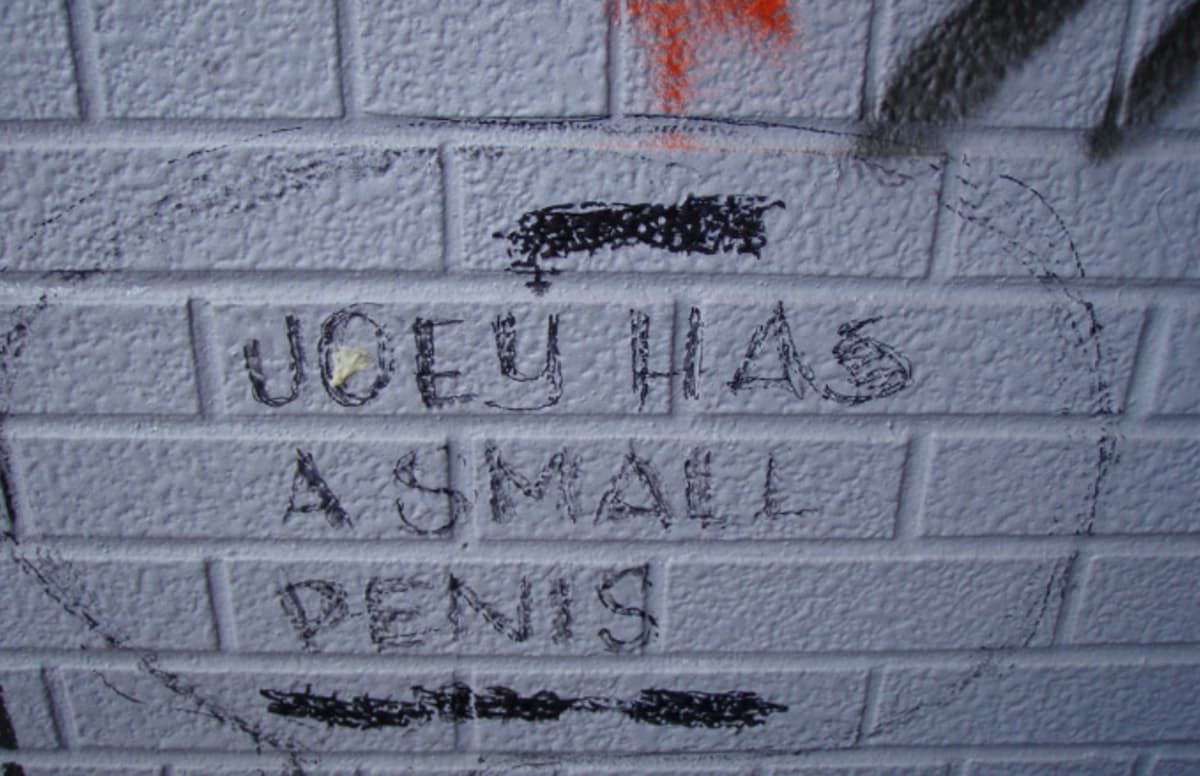 JOEY HAS
A SMALL
PENIS